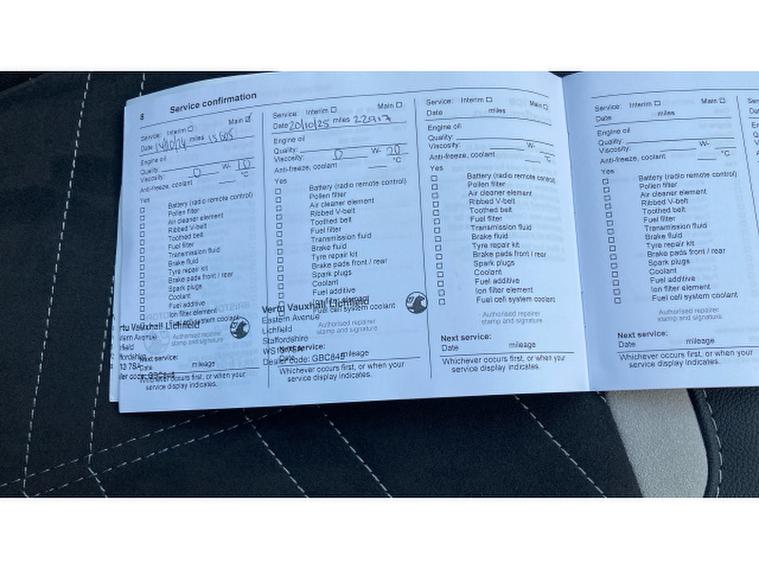 8 Service confirmation
Service: Interim □ Main ☑
Date 14/10/24 miles
Engine oil
Quality:
Viscosity: 0 W-
Anti-freeze, coolant °C
Yes
□ Battery (radio remote control)
□ Pollen filter
□ Air cleaner element
□ Ribbed V-belt
□ Toothed belt
□ Fuel filter
□ Transmission fluid
□ Brake fluid
□ Tyre repair kit
□ Brake pads front / rear
□ Spark plugs
□ Coolant
□ Fuel additive
□ Ion filter element
□ Fuel cell system coolant
Authorised repairer
stamp and signature
rtu Vauxhall Lichfield
ern Avenue
Next service:
Date mileage
Whichever occurs first, or when your
service display indicates.
Service: Interim □ Main □
Date 20/10/25 miles
Engine oil
Quality:
Viscosity: 0 W- 20
Anti-freeze, coolant °C
Yes
□ Battery (radio remote control)
□ Pollen filter
□ Air cleaner element
□ Ribbed V-belt
□ Toothed belt
□ Fuel filter
□ Transmission fluid
□ Brake fluid
□ Tyre repair kit
□ Brake pads front / rear
□ Spark plugs
□ Coolant
□ Fuel additive
Fuel cell system coolant
Vertu Vauxhall Lichfield
Eastern Avenue
Lichfield
Staffordshire
Dealer code: GBC845
Authorised repairer
stamp and signature
Next service:
Date mileage
Whichever occurs first, or when your
service display indicates.
Service: Interim □ Main □
Date miles
Engine oil
Quality:
Viscosity: W-
Anti-freeze, coolant °C
Yes
□ Battery (radio remote control)
□ Pollen filter
□ Air cleaner element
□ Ribbed V-belt
□ Toothed belt
□ Fuel filter
□ Transmission fluid
□ Brake fluid
□ Tyre repair kit
□ Brake pads front / rear
□ Spark plugs
□ Coolant
□ Fuel additive
□ Ion filter element
□ Fuel cell system coolant
Authorised repairer
stamp and signature
Next service:
Date mileage
Whichever occurs first, or when your
service display indicates.
Service: Interim □ Main □
Date miles
Engine oil
Quality:
Viscosity: W-
Anti-freeze, coolant °C
Yes
□ Battery (radio remote control)
□ Pollen filter
□ Air cleaner element
□ Ribbed V-belt
□ Toothed belt
□ Fuel filter
□ Transmission fluid
□ Brake fluid
□ Tyre repair kit
□ Brake pads front / rear
□ Spark plugs
□ Coolant
□ Fuel additive
□ Ion filter element
□ Fuel cell system coolant
Authorised repairer
stamp and signature
Next service:
Date mileage
Whichever occurs first, or when your
service display indicates.